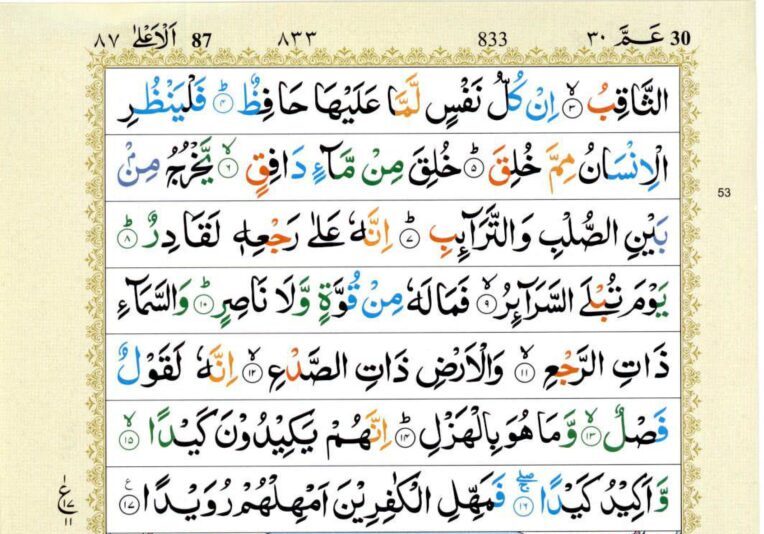 ٨٧ اَلْاَعْلٰى 87 ٨٣٣ 833 عَـمَّ ٣٠ 30
الثَّاقِبُ ۙ﴿۳﴾ اِنْ كُلُّ نَفْسٍ لَّمَّا عَلَيْهَا حَافِظٌ ؕ﴿۴﴾ فَلْيَنْظُرِ
الْاِنْسَانُ مِمَّ خُلِقَ ؕ﴿۵﴾ خُلِقَ مِنْ مَّآءٍ دَافِقٍ ۙ﴿۶﴾ يَّخْرُجُ مِنْۢ
بَيْنِ الصُّلْبِ وَالتَّرَآئِبِ ؕ﴿۷﴾ اِنَّهٗ عَلٰى رَجْعِهٖ لَقَادِرٌ ؕ﴿۸﴾
53
يَوْمَ تُبْلَى السَّرَآئِرُ ۙ﴿۹﴾ فَمَا لَهٗ مِنْ قُوَّةٍ وَّلَا نَاصِرٍ ؕ﴿۱۰﴾ وَالسَّمَآءِ
ذَاتِ الرَّجْعِ ۙ﴿۱۱﴾ وَالْاَرْضِ ذَاتِ الصَّدْعِ ۙ﴿۱۲﴾ اِنَّهٗ لَقَوْلٌ
فَصْلٌ ۙ﴿۱۳﴾ وَّمَا هُوَ بِالْهَزْلِ ؕ﴿۱۴﴾ اِنَّهُمْ يَكِيْدُوْنَ كَيْدًا ۙ﴿۱۵﴾
وَّاَكِيْدُ كَيْدًا ۚۖ﴿۱۶﴾ فَمَهِّلِ الْكٰفِرِيْنَ اَمْهِلْهُمْ رُوَيْدًا ﴿۱۷﴾
ع
١
١٧
١١